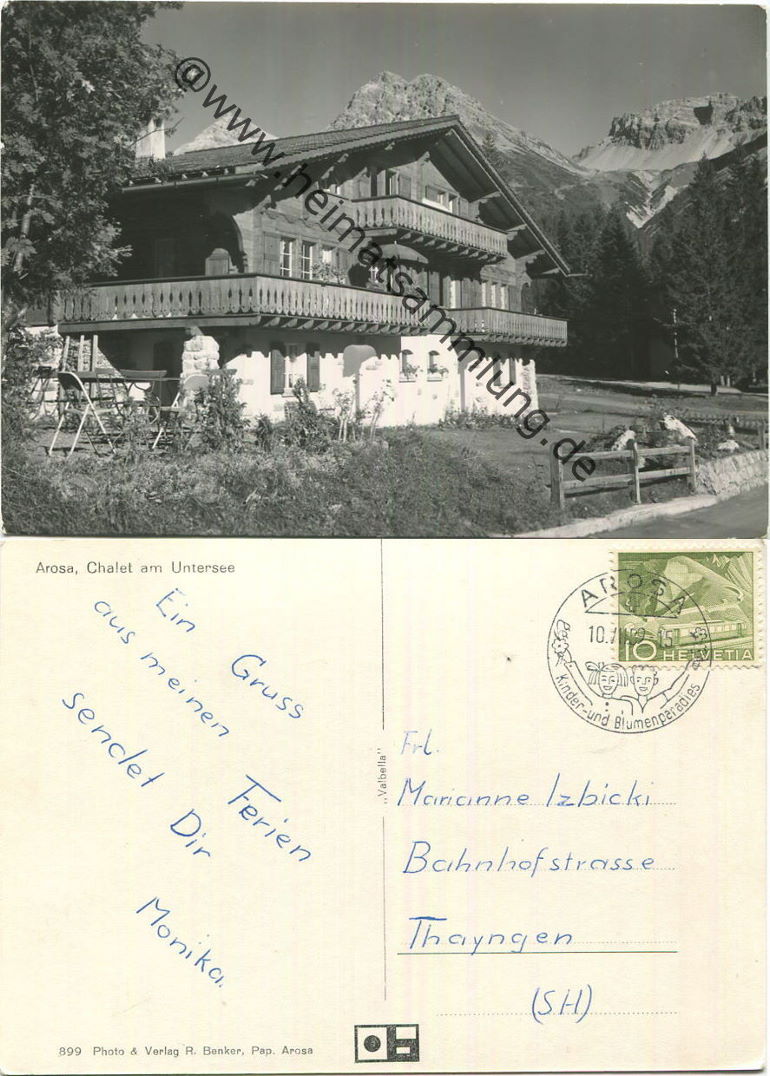 @www.heimatsammlung.de
Arosa, Chalet am Untersee
Ein Gruss
aus meinen Ferien
sendet Dir
Monika.
„Valbella"
AROSA
Kinder- und Blumenparadies
10 HELVETIA
Frl.
Marianne Izbicki
Bahnhofstrasse
Thayngen
(SH)
899 Photo & Verlag R. Benker, Pap. Arosa